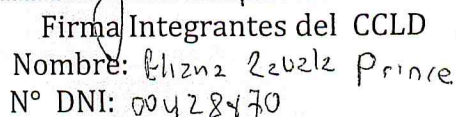 Firma Integrantes del CCLD
Nombre: Eliana Zavala Prince
N° DNI: 00428470